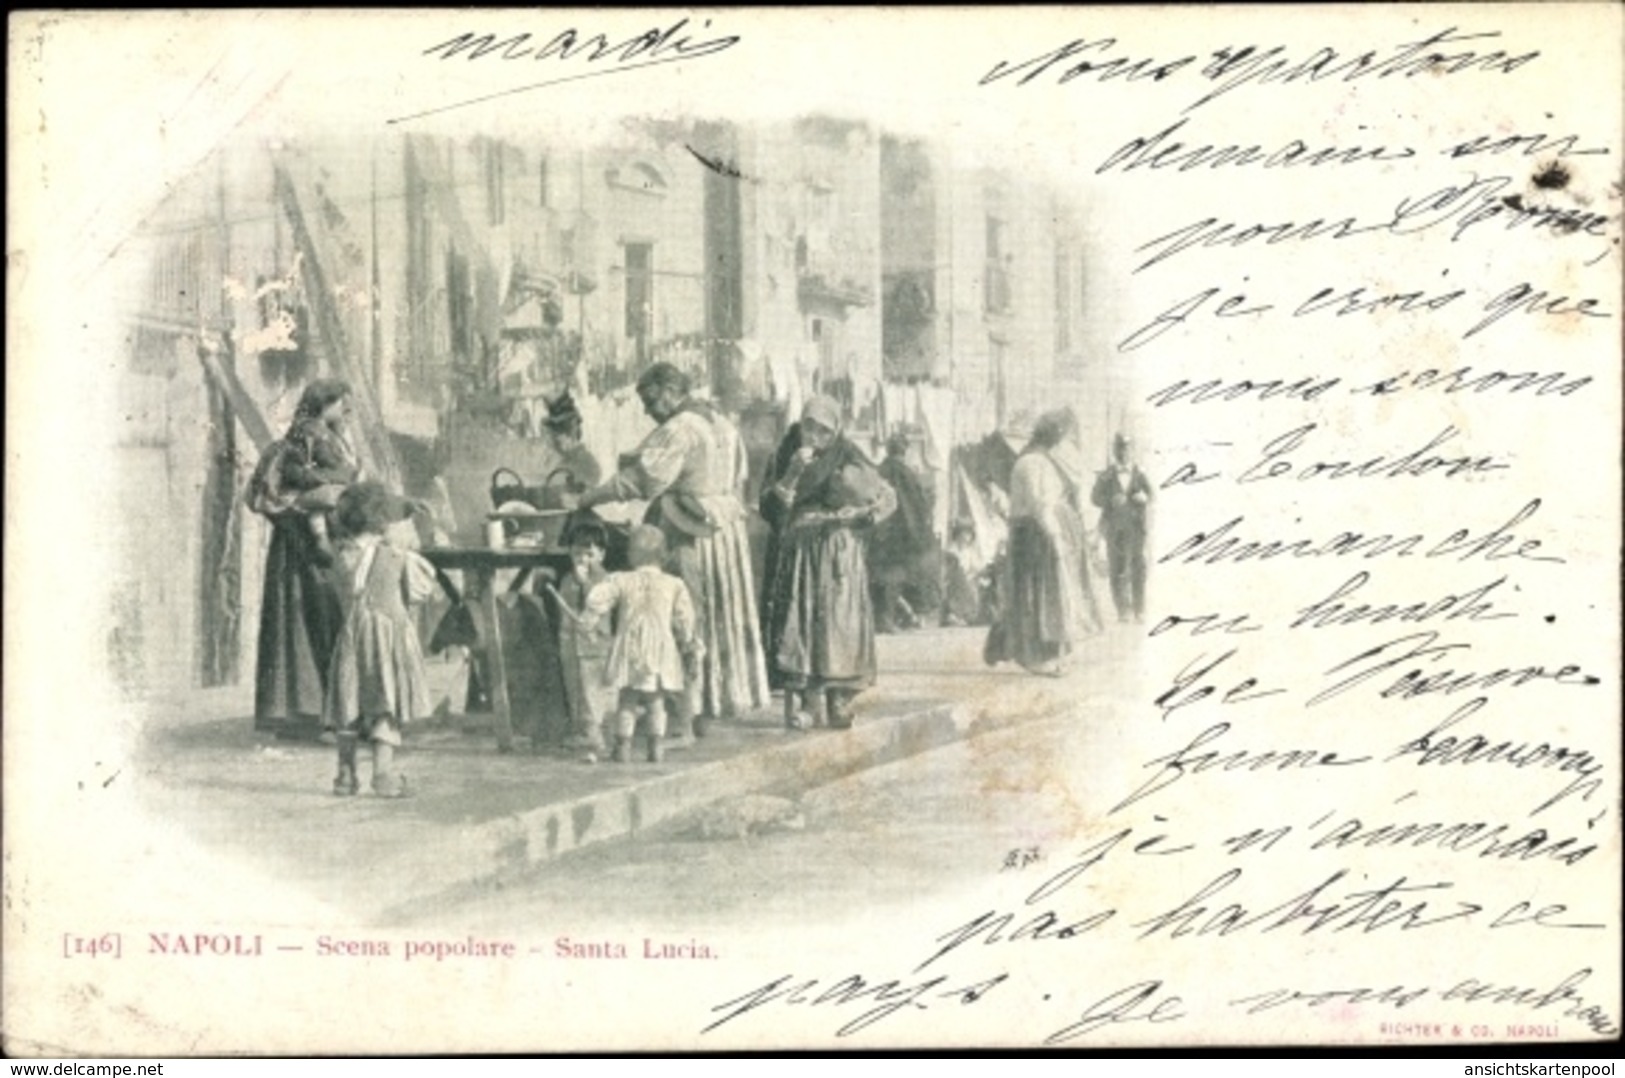 mardi
Nous repartons
demain soir
pour Rome,
je crois que
nous serons
à Toulon
dimanche
ou lundi.
Le Vésuve
fume beaucoup,
je n'aimerais
pas habiter ce
pays. Je vous embrasse
[146] NAPOLI — Scena popolare - Santa Lucia.
RICHTER & CO. NAPOLI
www.delcampe.net
ansichtskartenpool